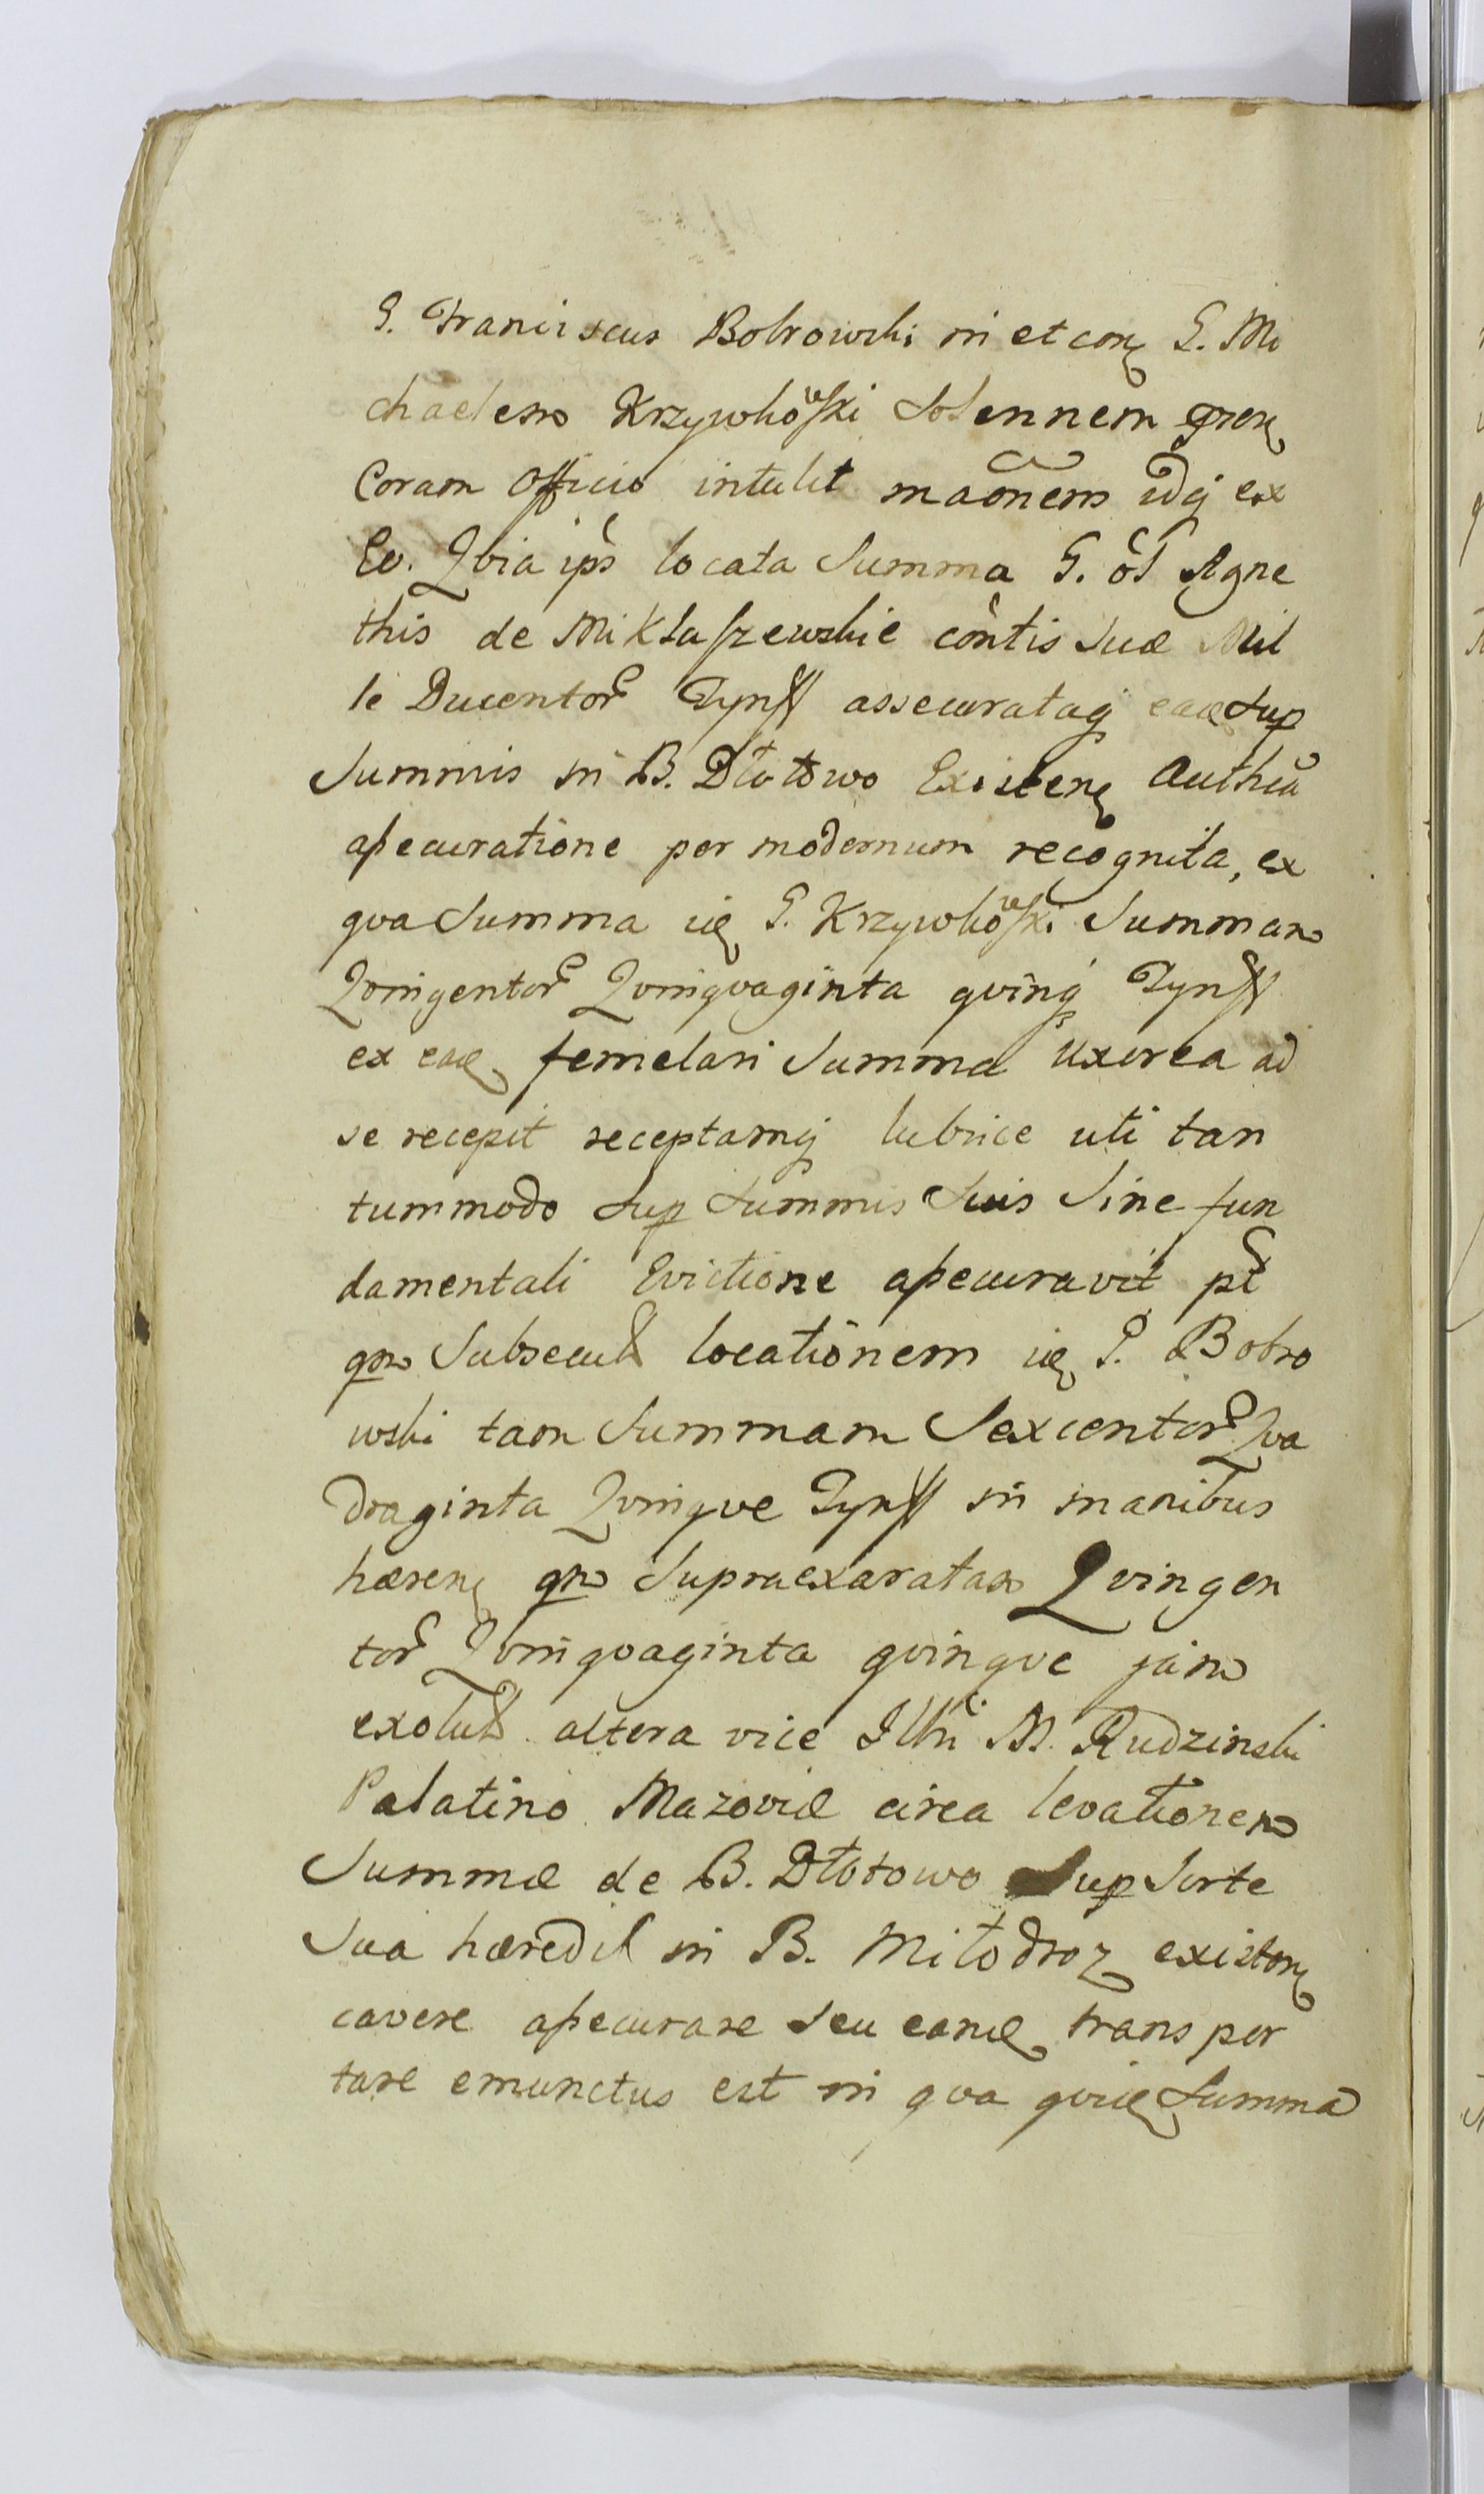 G. Franciscus Bobrowski in et con G. Mi
chaelem Krzywkowski Solennem
Coram Officio intulit maõnem idq ex
Eo. Qvia ips locata Summa G. ol Agne
this de Miklaszewskie contis Suæ Mil
le Ducentor Tynff assecurataq eade Sup
Summis in B. Dłotowo Existen Authca
assecuratione per modernum recognita, ex
qva Summa id G. Krzywkowski Summam
Qvingentor Qvinqvaginta qvinq Tynff
ex ead femelari Summa Uxorea ad
se recepit receptamq lubrice uti tan
tummodo Sup Summis Suis Sine fun
damentali Evictione assecuravit pt
qm Subsecut locationem id G. Bobro
wski tam Summam Sexcentor Qva
draginta Qvinqve Tynff in manibus
hæren qm Supraexaratam Qvingen
tor Qvinqvaginta qvinqve jam
exolut altera vice Illri M. Rudzinski
Palatino Mazoviæ circa levationem
Summæ de B. Dłotowo Sup Sorte
Sua hæredit in B. Miłodroz existen
cavere assecurare Seu eand transpor
tare emunctus est in qva qvid Summa